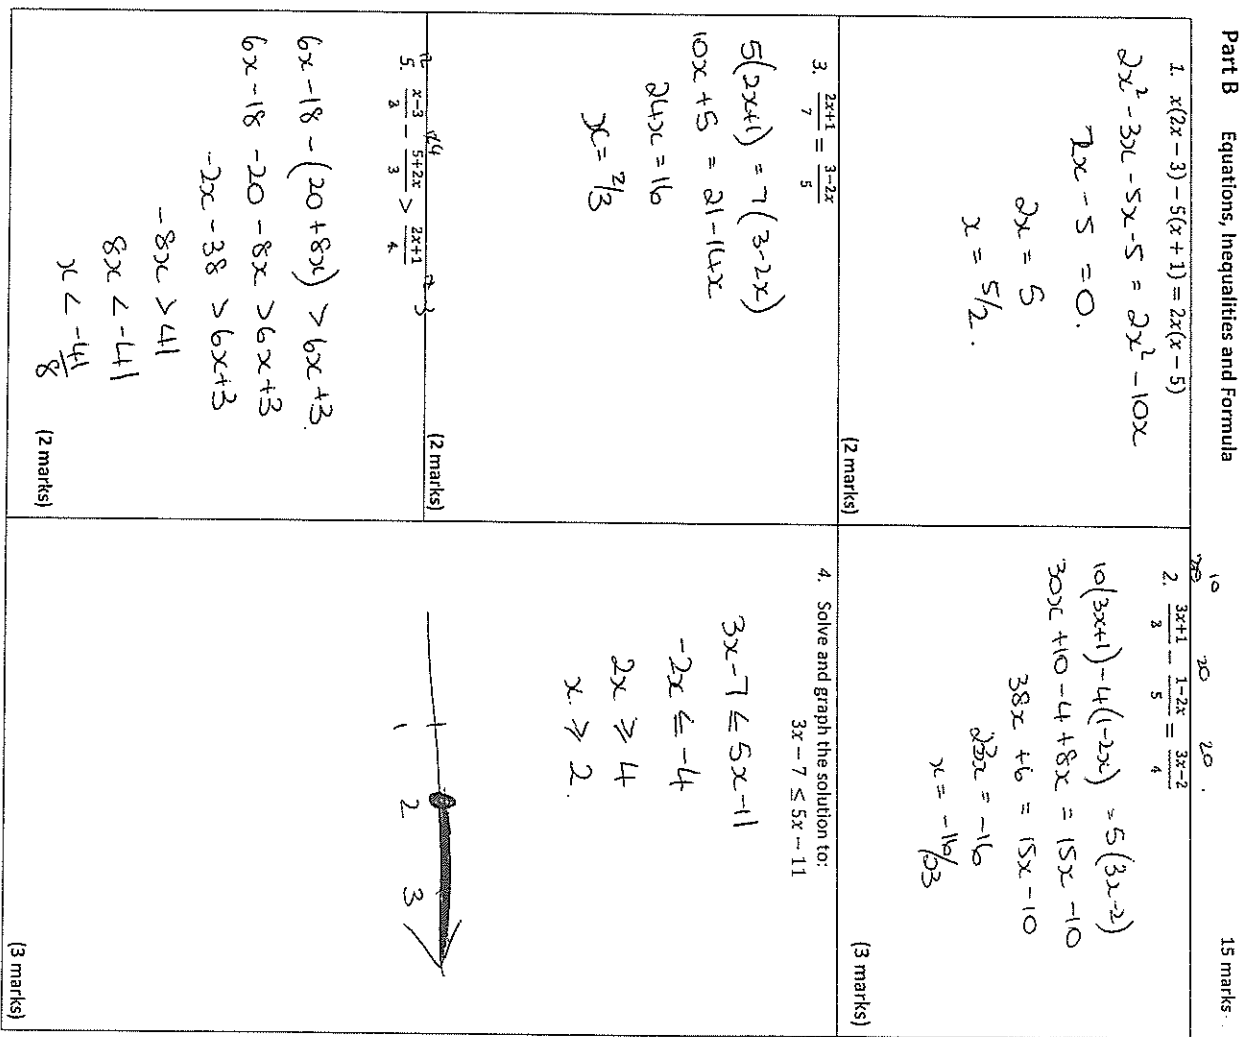 Part B Equations, Inequalities and Formula 15 marks
1. x(2x − 3) − 5(x + 1) = 2x(x − 5)
2x² - 3x - 5x - 5 = 2x² - 10x
2x - 5 = 0.
2x = 5
x = 5/2.
(2 marks)
10 20 20.
2. (3x+1)/2 − (1−2x)/5 = (3x−2)/4
10(3x+1) - 4(1-2x) = 5(3x-2)
30x + 10 - 4 + 8x = 15x - 10
38x + 6 = 15x - 10
23x = -16
x = -16/23
(3 marks)
3. (2x+1)/7 = (3−2x)/5
5(2x+1) = 7(3-2x)
10x + 5 = 21 - 14x
24x = 16
x = 2/3
(2 marks)
4. Solve and graph the solution to:
3x − 7 ≤ 5x − 11
3x - 7 ≤ 5x - 11
-2x ≤ -4
2x ≥ 4
x ≥ 2.
1 2 3
(3 marks)
5. (x−3)/2 − (5+2x)/3 > (2x+1)/4
6x - 18 - (20 + 8x) > 6x + 3.
6x - 18 - 20 - 8x > 6x + 3
-2x - 38 > 6x + 3
-8x > 41
8x < -41
x < -41/8
(2 marks)